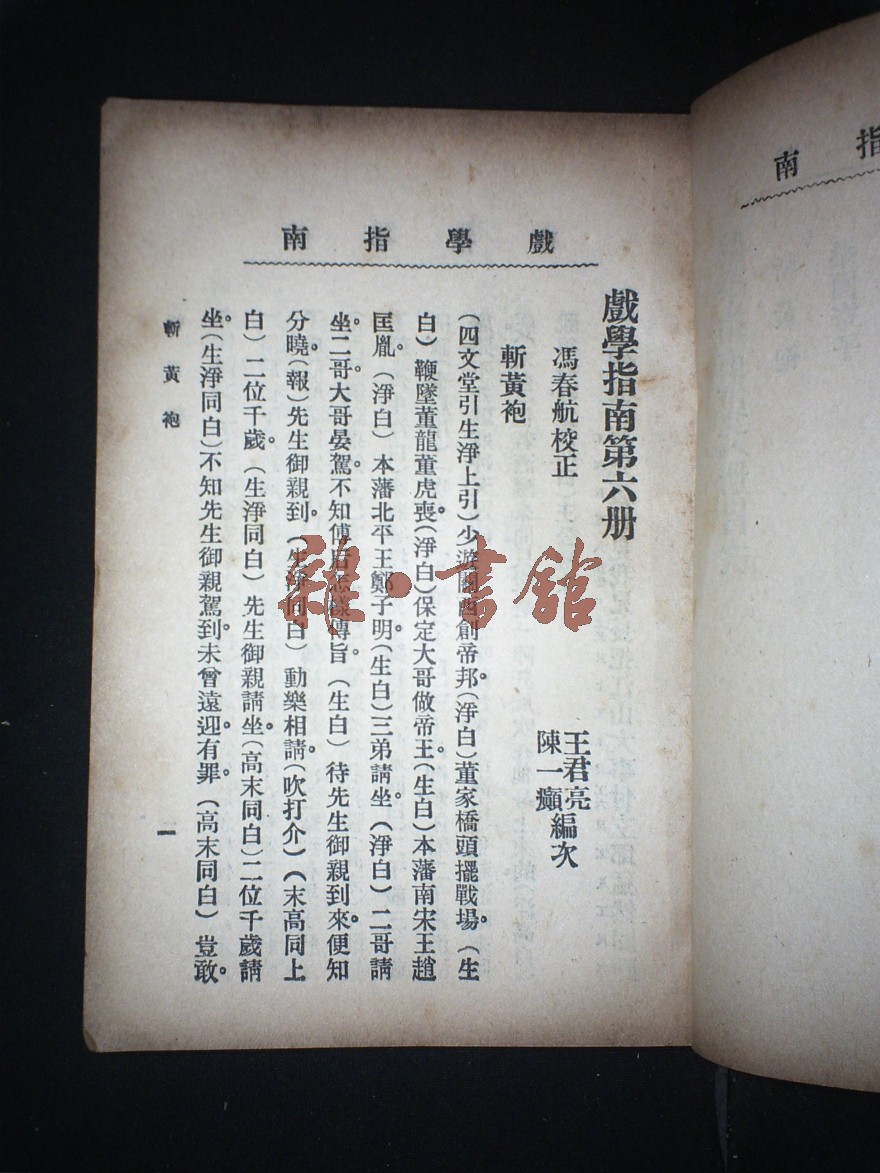 指南
戲學指南
戲學指南第六册
馮春航校正
王君亮
陳一癲編次
斬黃袍
（四文堂引生淨上引）少遊關西創帝邦。（淨白）董家橋頭擺戰場。（生
白）鞭墜董龍董虎喪。（淨白）保定大哥做帝王（生白）本藩南宋王趙
匡胤。（淨白）本藩北平王鄭子明。（生白）三弟請坐。（淨白）二哥請
坐。二哥。大哥晏駕。不知傅后怎樣傳旨。（生白）待先生御親到來。便知
分曉。（報）先生御親到。（生淨同白）動樂相請。（吹打介）（末高同上
白）二位千歲。（生淨同白）先生御親請坐。（高末同白）二位千歲請
坐。（生淨同白）不知先生御親駕到。未曾遠迎。有罪。（高末同白）豈敢。
斬黃袍
一
雜·書館